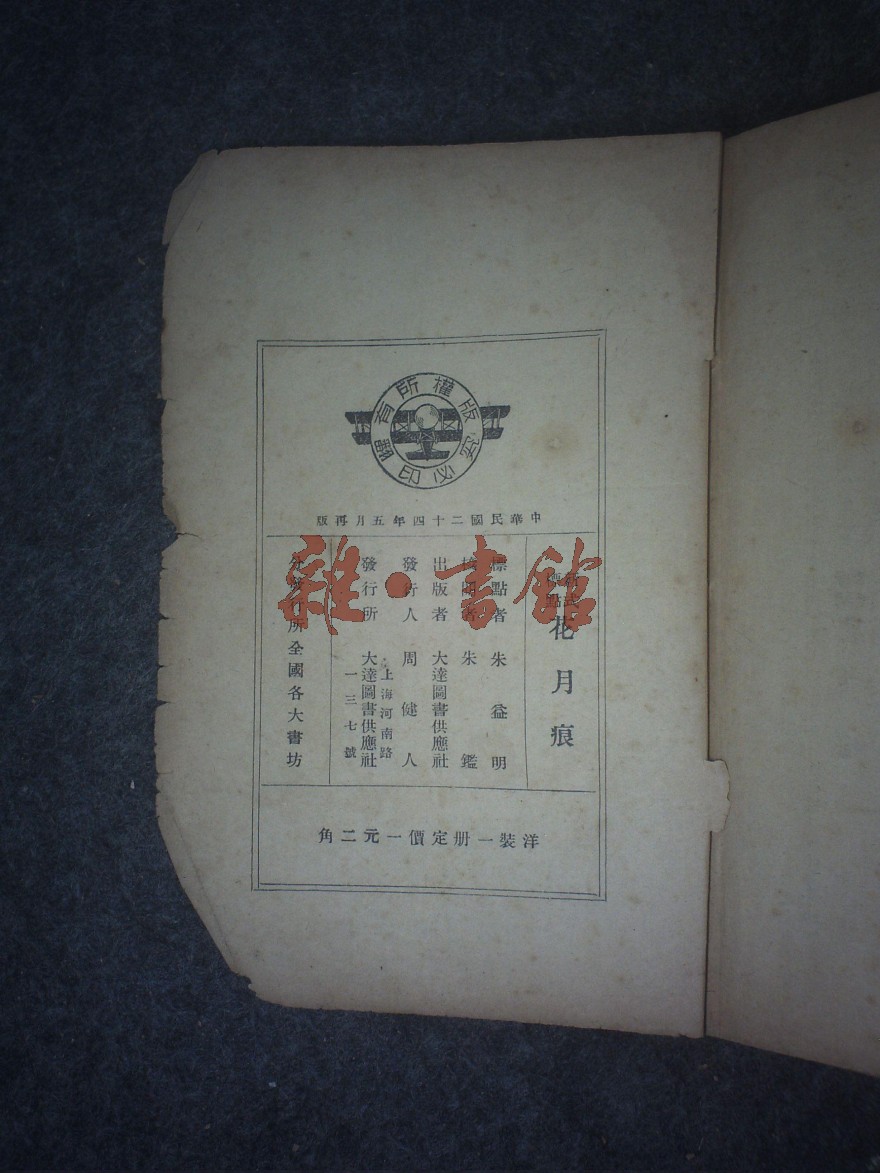 版權所有
翻印必究
中華民國二十四年五月再版
新式標點 花月痕
標點者 朱益明
校閱者 朱鑑
出版者 大達圖書供應社
發行人 周健人
發行所 大達圖書供應社
上海河南路
一三七號
分發行所全國各大書坊
洋裝一册定價一元二角
雜·書館